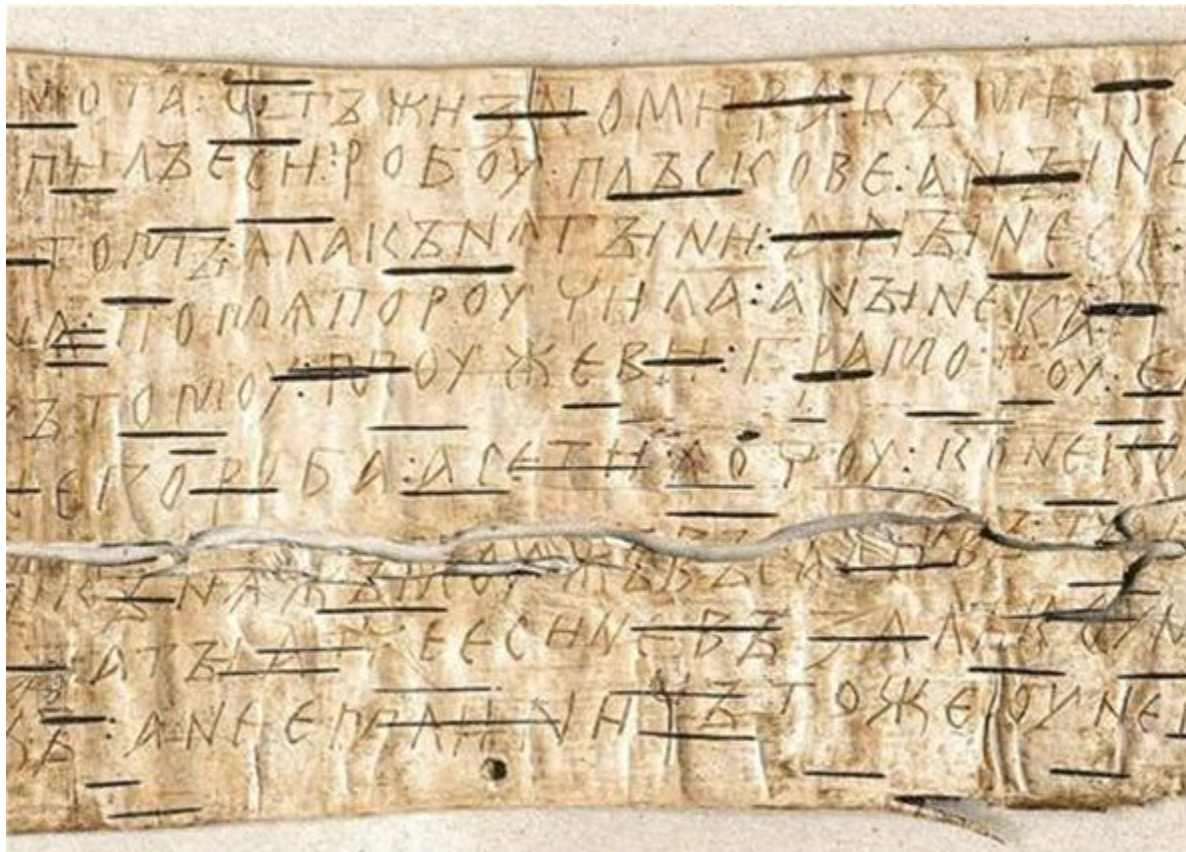 МОТА : ѠТЪ ЖИЗНОМИРА : КЪ МИК
ПИЛЪ ЕСИ : РОБОУ : ПЛЪСКОВЕ : А НꙐНЕ
ТОМЪ : ѦЛА КЪНѦГꙐНИ : А НꙐНЕ СѦ
НА : ПО МѦ ПОРОУЧИЛА : А НꙐНЕ КА :
Ъ ТОМОУ : МОУЖЕВИ : ГРАМОТОУ : Е
НЕГО РОБА : А СЕ ТИ ХОЧОУ : КОНЕ КО
КЪНѦЖЪ МОУЖЪ ВЪСА
А ТꙐ АТЧЕ ЕСИ НЕ ВЪЗАЛЪ КОУН
ХЪ : А НЕ ЕМЛИ : НИЧЪТО ЖЕ ОУ НЕ